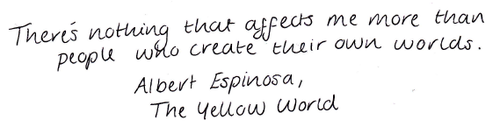 There's nothing that affects me more than
people who create their own worlds.
Albert Espinosa,
The Yellow World